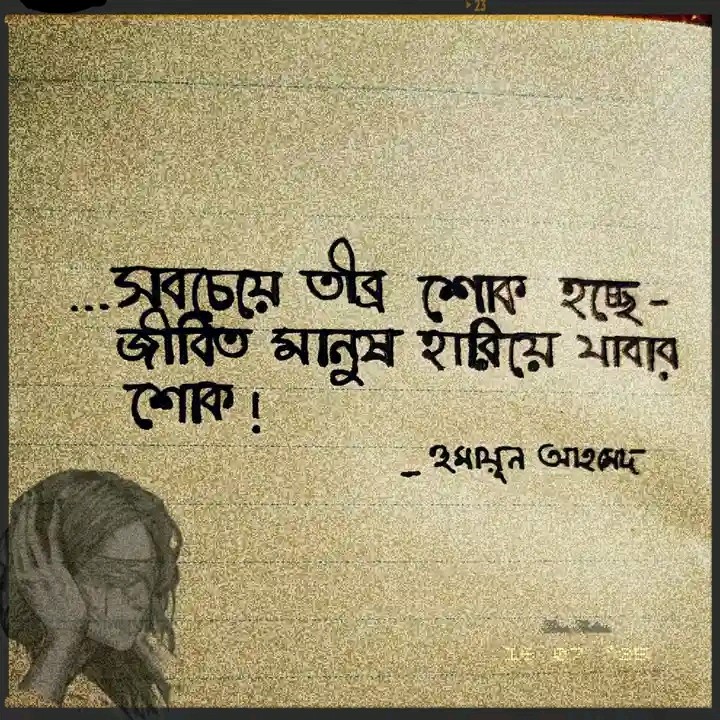 23
...সবচেয়ে তীব্র শোক হচ্ছে -
জীবিত মানুষ হারিয়ে যাবার
শোক !
_ হুমায়ূন আহমেদ